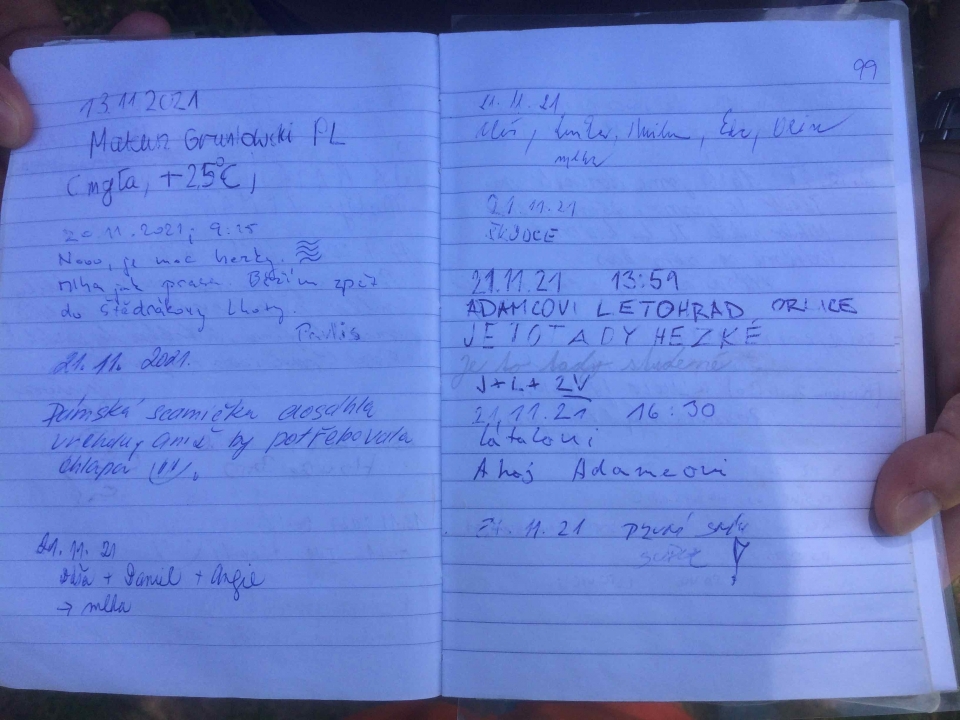 13.11.2021
Mateusz Grunowski PL
(mgła, +2.5°C,
20.11.2021, 9:15
Nooo, je moc hezky.
mlha jak prase. Běžím zpět
do Štědrákovy Lhoty.
Pavlis
21.11. 2021.
Dámská seamička dosáhla
vrcholu, aniž by potřebovala
chlapa
21. 11. 21
+ Daniel + Angie
→ mlha
99
21.11.21
mlha
21.11.21
ŠKŮDCE
21.11.21 13:59
ADAMCOVI LETOHRAD ORLICE
JE TO TADY HEZKÉ
je to tady studené
J+L+2V
21.11.21 16:30
Látalovi
Ahoj Adamcovi
27.11.21 první